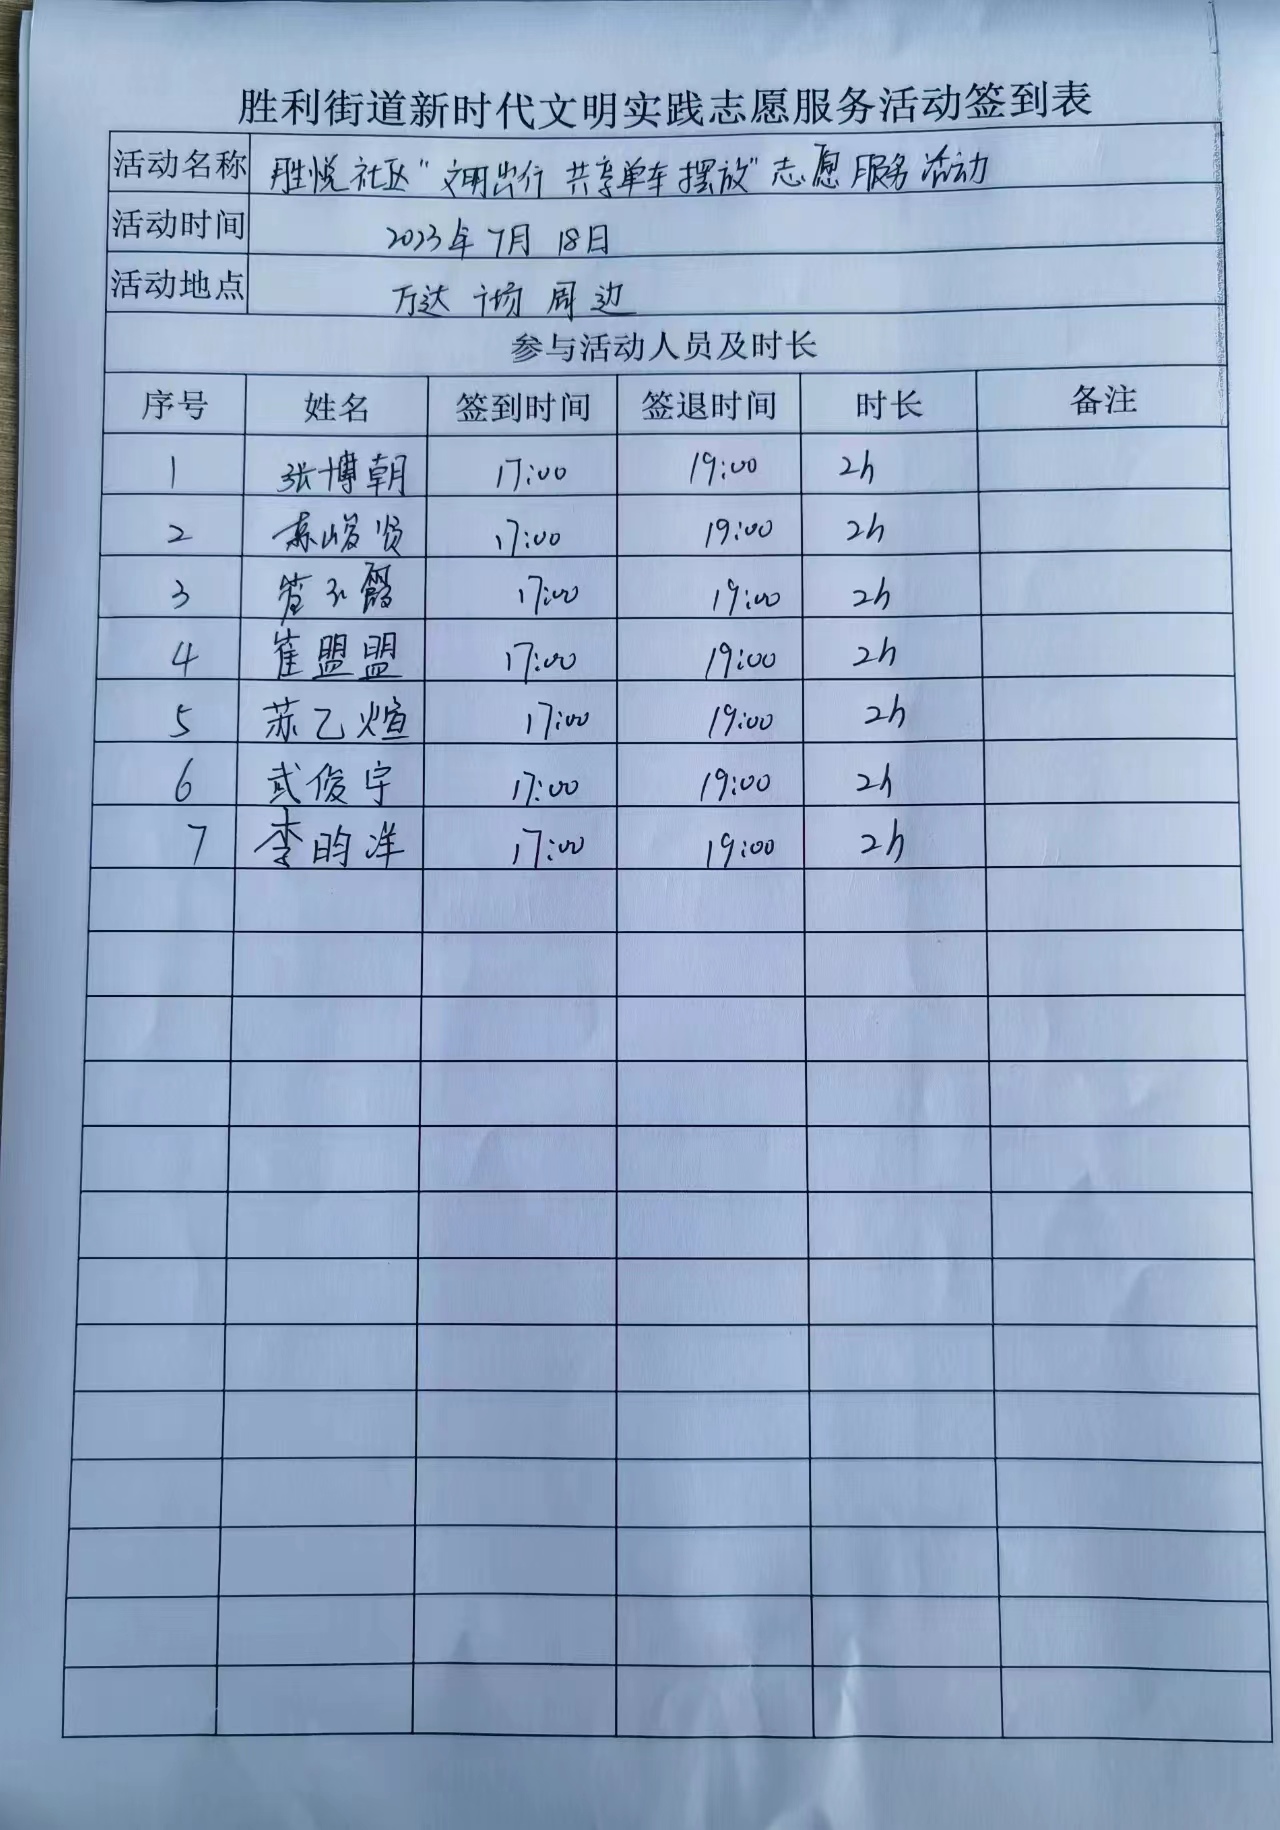 胜利街道新时代文明实践志愿服务活动签到表
活动名称 胜悦社区“文明出行 共享单车摆放”志愿服务活动
活动时间 2023年7月18日
活动地点 万达广场周边
参与活动人员及时长
序号 姓名 签到时间 签退时间 时长 备注
1 张博朝 17:00 19:00 2h
2 峻贤 17:00 19:00 2h
3 霞 17:00 19:00 2h
4 崔盟盟 17:00 19:00 2h
5 苏乙煊 17:00 19:00 2h
6 武俊宇 17:00 19:00 2h
7 李昀洋 17:00 19:00 2h